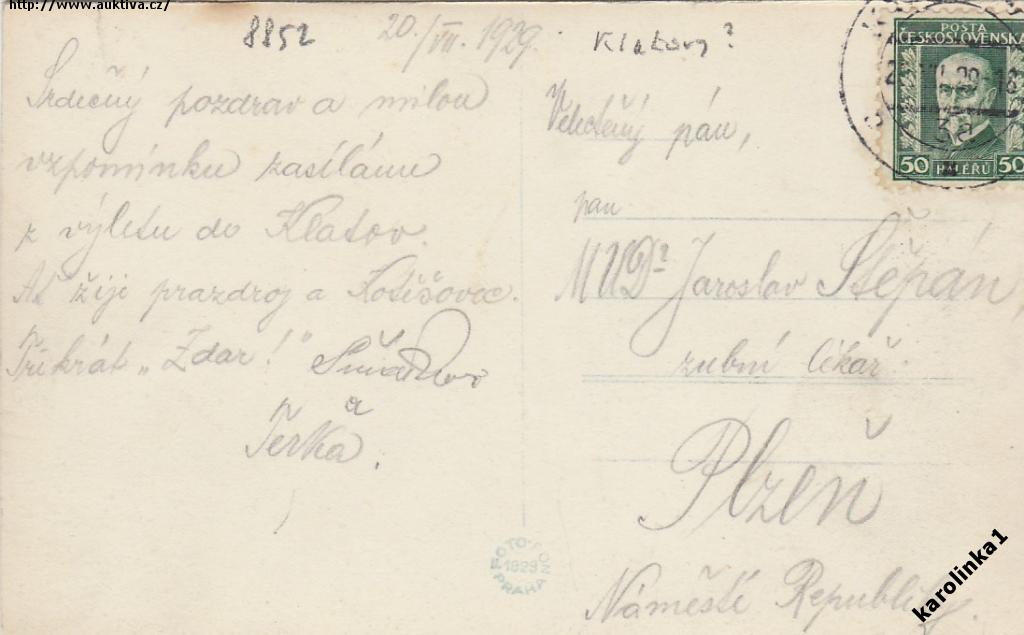 http://www.auktiva.cz/
8852
20./VII. 1929.
Klatovy?
Srdečný pozdrav a milou
vzpomínku zasíláme
z výletu do Klatov.
Ať žije prazdroj a
Třikrát „Zdar!"
a
Terka.
POSTA
ČESKOSLOVENSKÁ
50 HALÉŘŮ 50
Velectěný pán,
pan
MUDr Jaroslav Štěpán,
zubní lékař
Plzeň
Náměstí Republiky.
FOTO-FON
1929
PRAHA
karolinka1